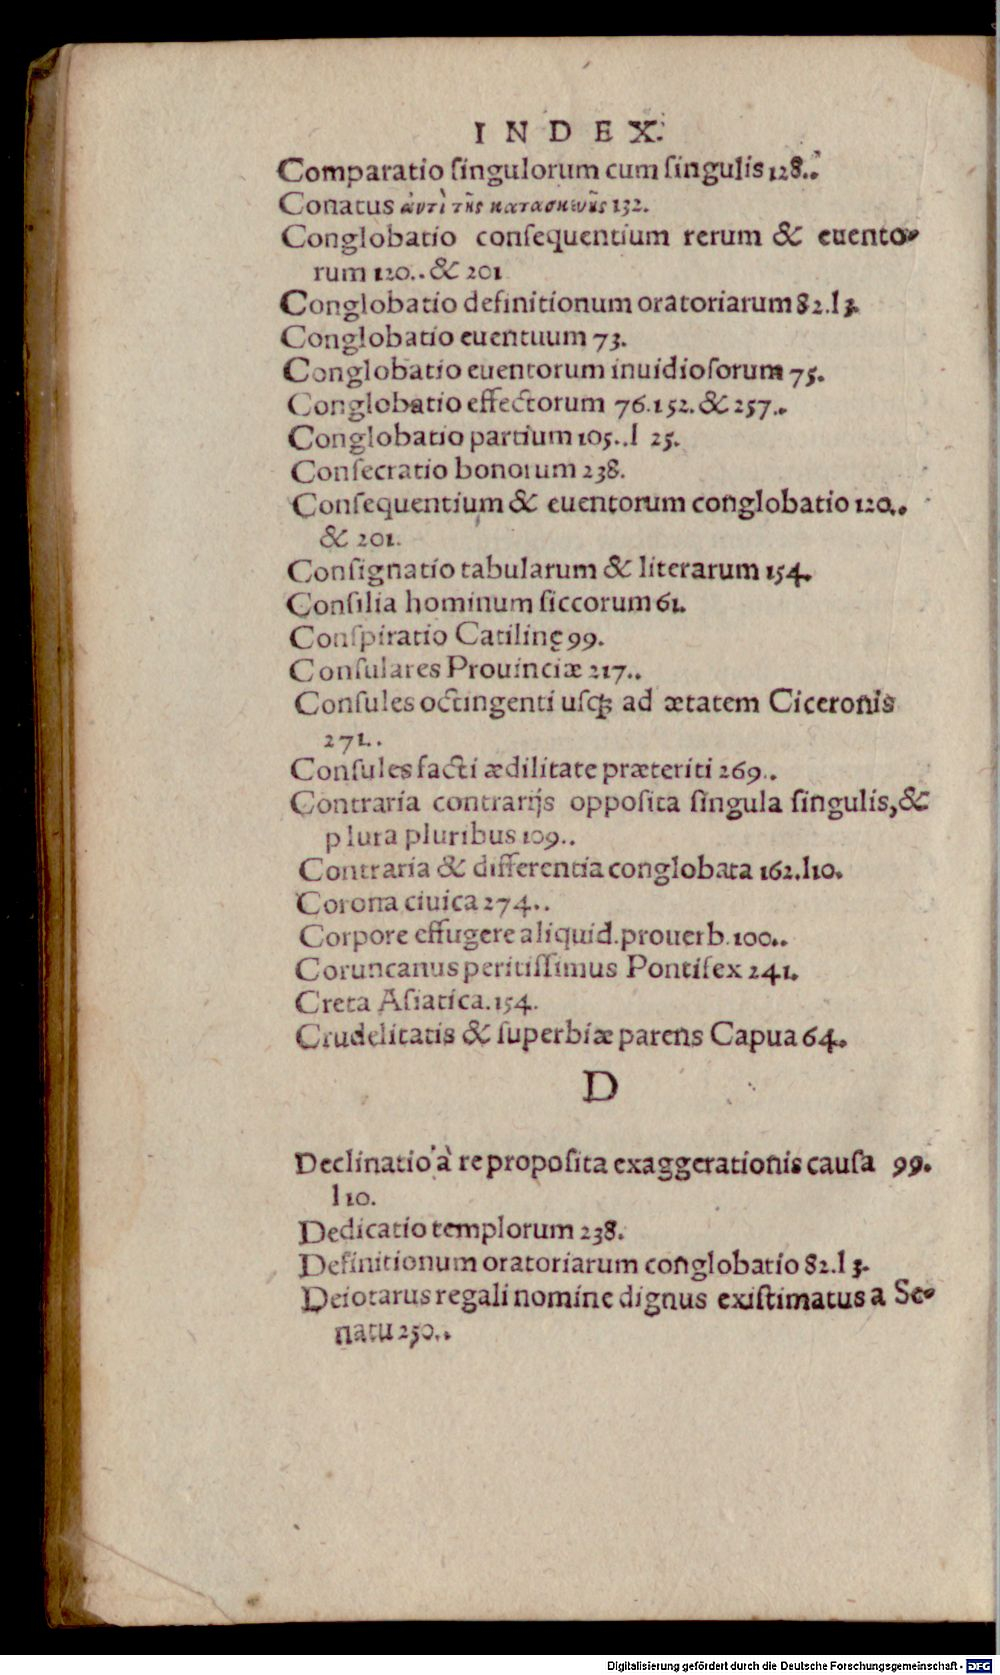 INDEX.
Comparatio ſingulorum cum ſingulis 128..
Conatus ἀντὶ τῆς κατασκευῆς 132.
Conglobatio conſequentium rerum & euento-
rum 120.. & 201
Conglobatio definitionum oratoriarum 82.l 3.
Conglobatio euentuum 73.
Conglobatio euentorum inuidioſorum 75.
Conglobatio effectorum 76.152. & 257..
Conglobatio partium 105..l 25.
Conſecratio bonorum 238.
Conſequentium & euentorum conglobatio 120..
& 201.
Conſignatio tabularum & literarum 154.
Conſilia hominum ſiccorum 61.
Conſpiratio Catilinę 99.
Conſulares Prouinciæ 217..
Conſules octingenti uſq; ad ætatem Ciceronis
271..
Conſules facti ædilitate præteriti 269..
Contraria contrarijs oppoſita ſingula ſingulis, &
plura pluribus 109..
Contraria & differentia conglobata 162.l10.
Corona ciuica 274..
Corpore effugere aliquid.prouerb.100..
Coruncanus peritiſſimus Pontifex 241.
Creta Aſiatica.154.
Crudelitatis & ſuperbiæ parens Capua 64.
D
Declinatio à re propoſita exaggerationis cauſa 99.
l 10.
Dedicatio templorum 238.
Definitionum oratoriarum conglobatio 82.l 3.
Deiotarus regali nomine dignus exiſtimatus a Se-
natu 250..
Digitalisierung gefördert durch die Deutsche Forschungsgemeinschaft - DFG